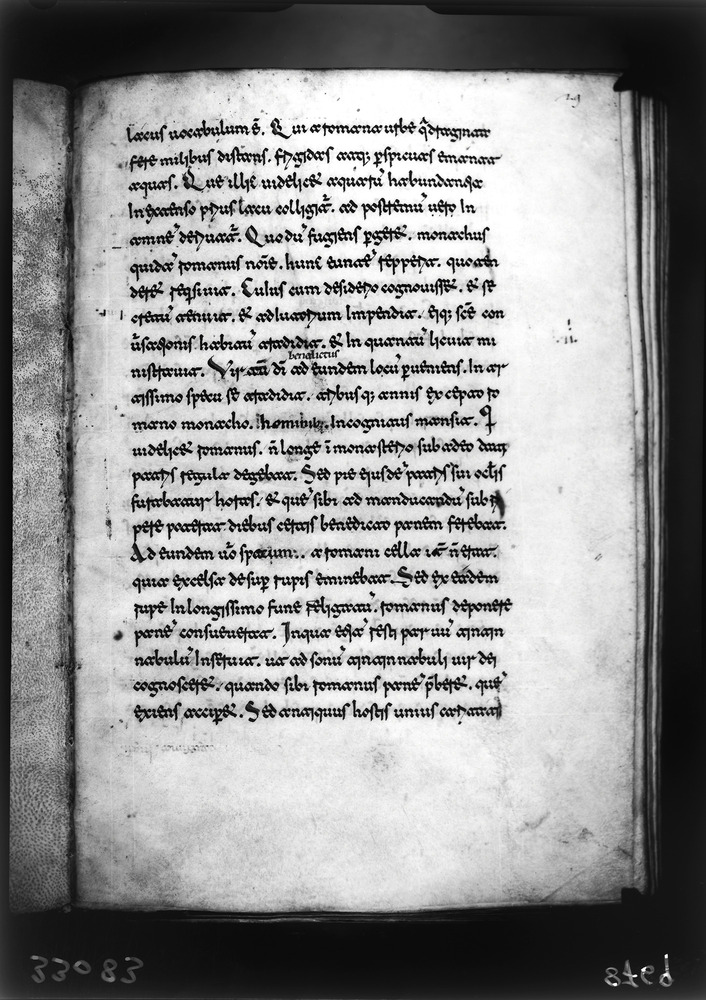 lacus uocabulum ē. Qui a romana urbe q̄draginta
fere milibus distans. frigidas atq; ꝑspicuas emanat
aquas. Que illic uidelicet aquarū habundantia
In extenso prius lacu colligit᷑. ad postremū uero In
amnē deriuat᷑. Quo dū fugiens ꝑgeret. monachus
quidā romanus noīe. hunc euntē repperit. quo ten
deret reqsiuit. Cuius cum desiderio cognouisset. et se
cretū tenuit. et adiutorium Impendit. eiq; scē con
ūsationis habitū tradidit. et In quantū licuit mi
nistrauit. Vir aū dī ad eundem locū ꝑueniens. In ar
benedictus
tissimo specu se tradidit. tribus q; annis excepto ro
mano monacho. hominibus. Incognitus mansit. Q
uidelicet romanus. ñ longe ī monasterio sub adeo dati
patris regula degebat. Sed pie eiusdē patris sui oclis
furabatur horas. et quē sibi ad manducandū subri
pere poterat diebus certis benedicto panem ferebat.
Ad eundem ūo specum. a romani cella it᷑ ñ erat.
quia excelsa desuꝑ rupis eminebat. Sed ex eadem
rupe In longissimo fune religatū. romanus deponere
panē consueuerat. In qua etiā resti paruū tintin
nabulū Inseruit. ut ad sonū tintinnabuli uir dei
cognosceret. quando sibi romanus panē p̄beret. quē
exiens acciꝑet. Sed antiquus hostis unius caritati
33083